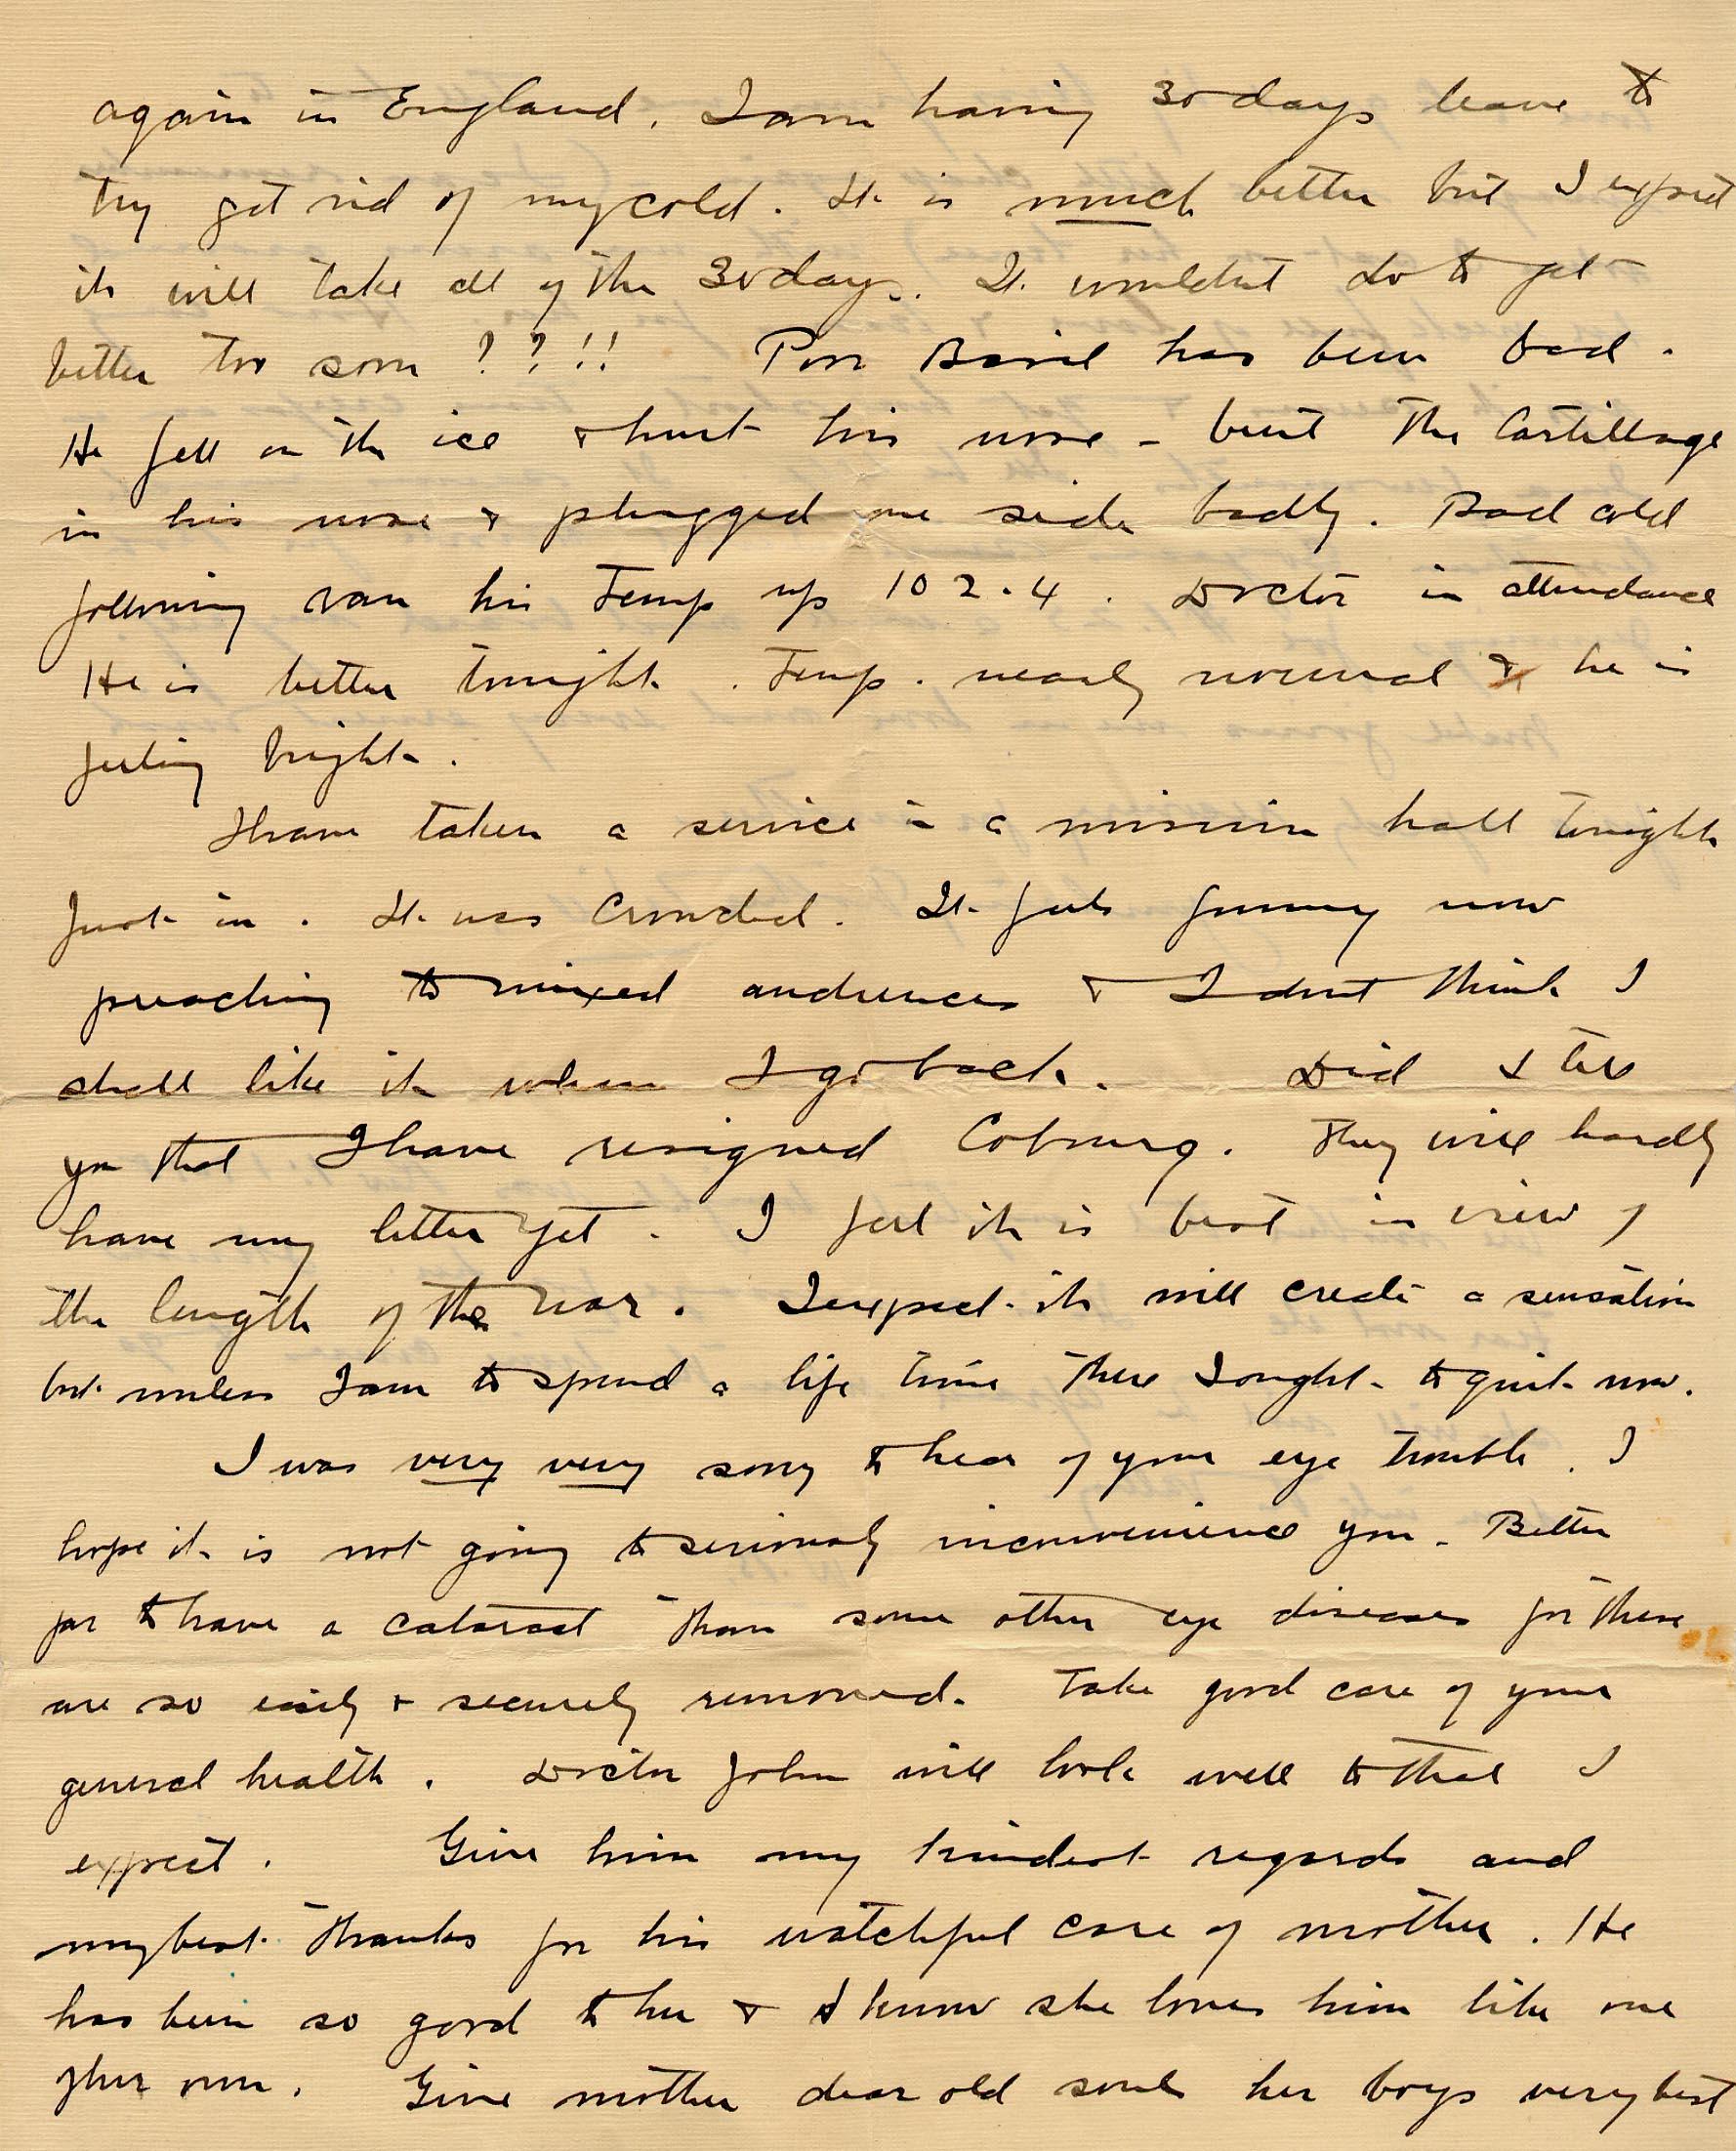 again in England. I am having 30 days leave to
try get rid of my cold. It is much better but I expect
it will take all of the 30 days. It wouldnt do to get
better too soon ??!! Poor Basil has been bad.
He fell on the ice & hurt his nose - bent the Cartillage
in his nose & plugged one side badly. Bad cold
following ran his Temp up 102.4. Doctor in attendance
He is better tonight. Temp. nearly normal & he is
feeling bright.
I have taken a service in a mission hall tonight
Just in. It was Crowded. It feels funny now
preaching to mixed audiences & I dont think I
shall like it when I go back. Did I tell
you that I have resigned Cobourg. They will hardly
have my letter yet. I feel it is best in view of
the length of the war. I expect it will create a sensation
but unless I am to spend a life time there I ought to quit now.
I was very very sorry to hear of your eye trouble. I
hope it is not going to seriously inconvenience you. Better
far to have a cataract than some other eye diseases for these
are so easily & securely removed. Take good care of your
general health. Doctor John will look well to that I
expect. Give him my kindest regards and
my best thanks for his watchful care of mother. He
has been so good to her & I know she loves him like one
of her own. Give mother dear old soul her boys very best